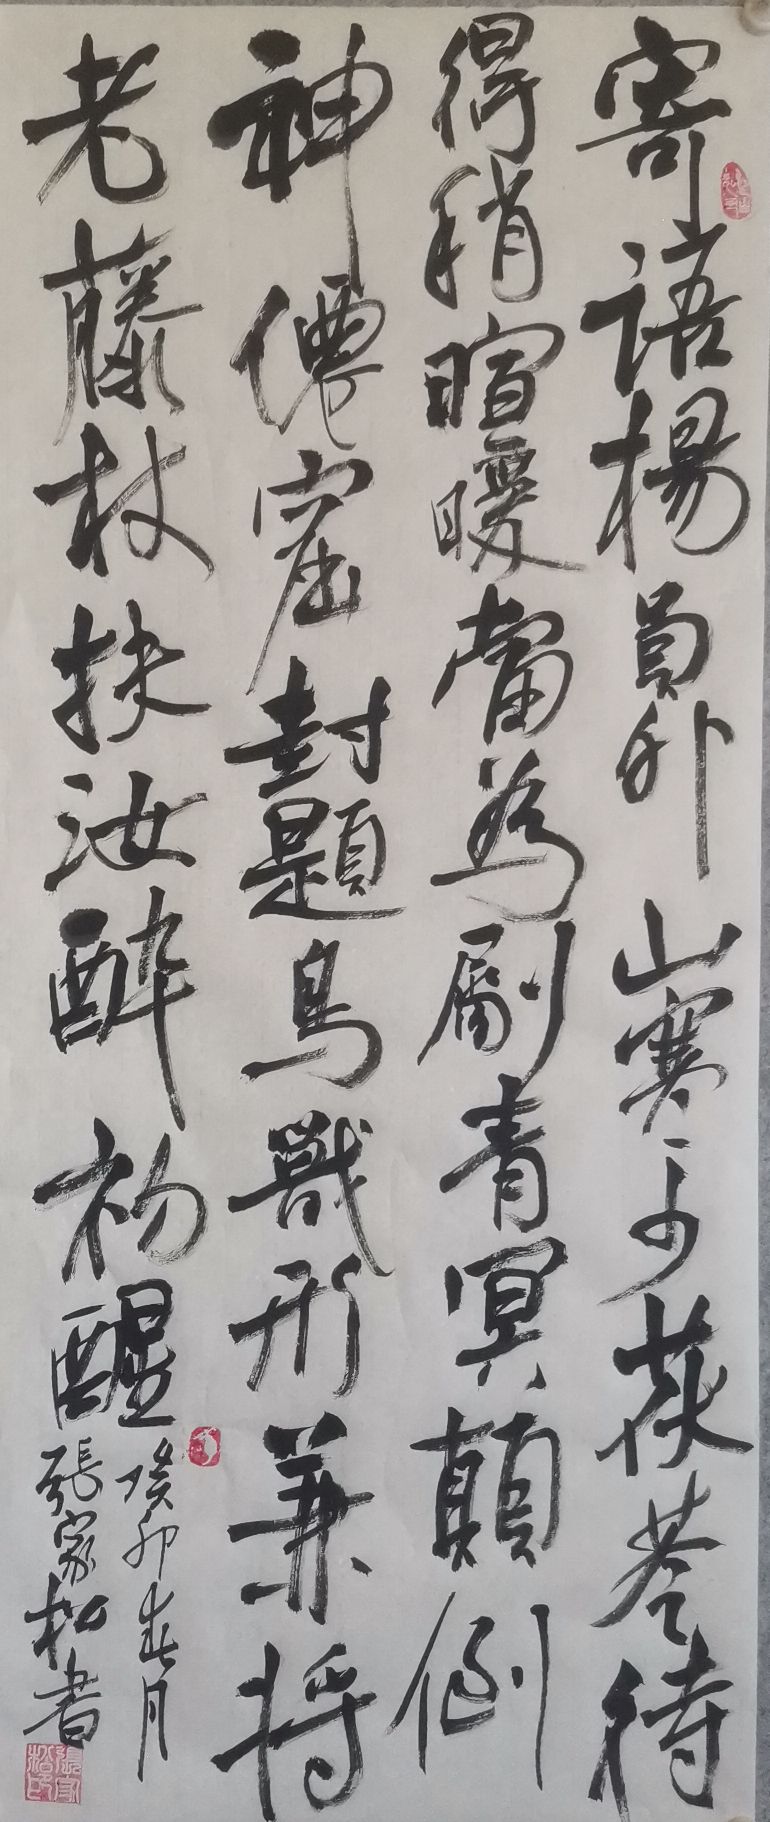 寄語楊員外山寒少茯苓待
得稍暄暖當為劚青冥顛倒
神僊窟封題鳥獸形兼將
老藤杖扶汝醉初醒
癸卯春月
張家松書